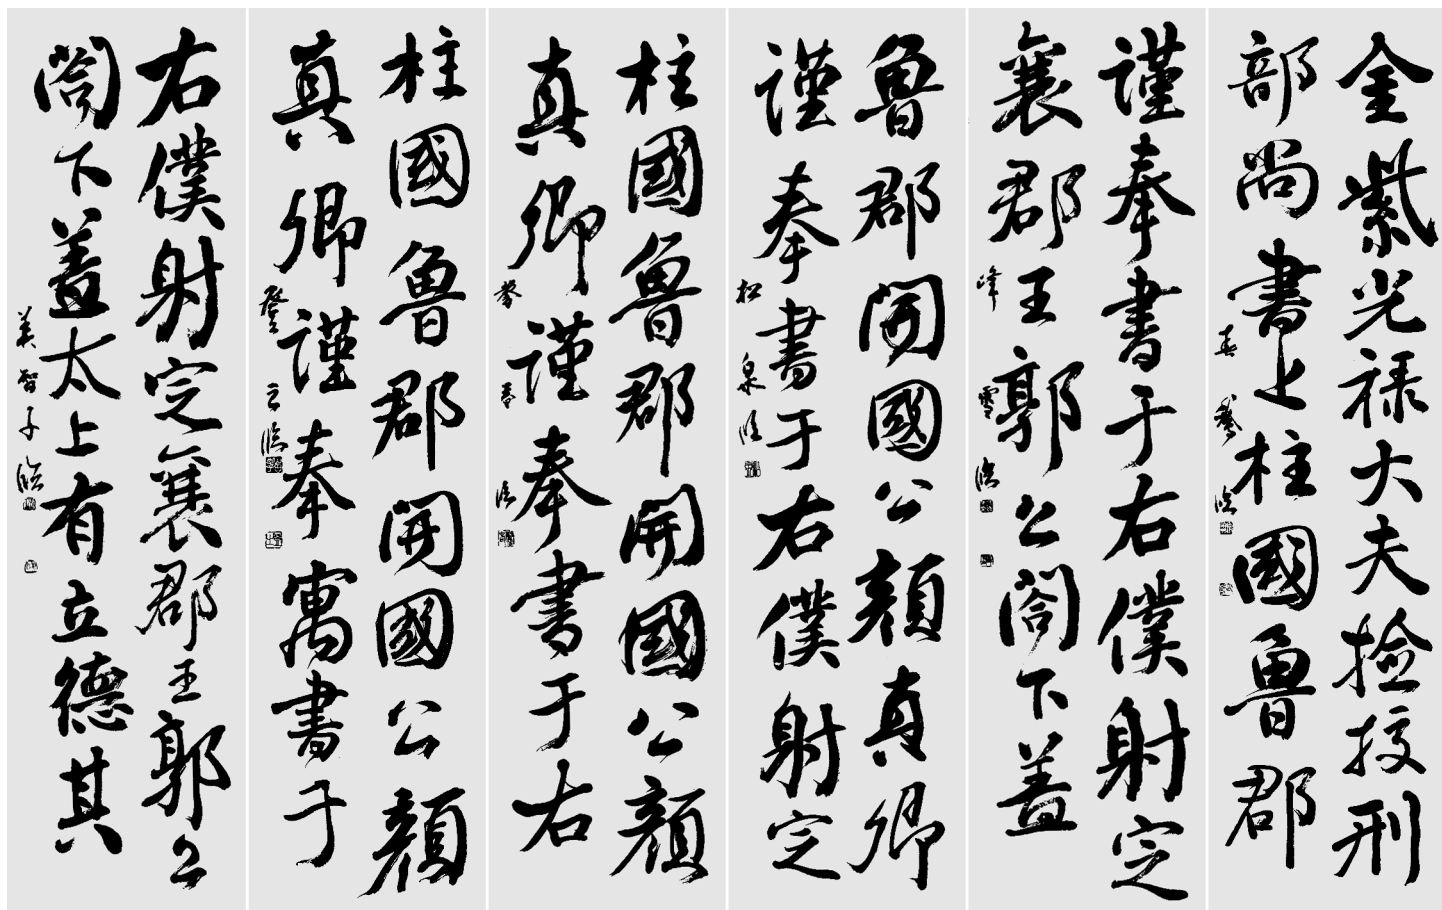 金紫光祿大夫撿挍刑
部尚書上柱國魯郡
春臨
謹奉書于右僕射定
襄郡王郭公閤下蓋
峰雪臨
魯郡開國公顏真卿
謹奉書于右僕射定
松泉臨
柱國魯郡開國公顏
真卿謹奉書于右
臨
柱國魯郡開國公顏
真卿謹奉寓書于
登云臨
右僕射定襄郡王郭公
閤下蓋太上有立德其
美智子臨